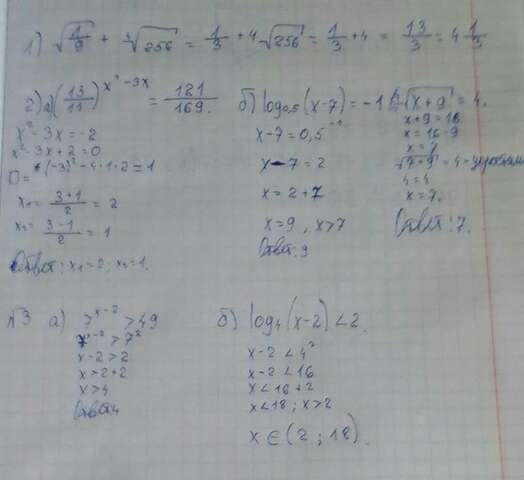 1) √1/9 + ⁴√256 = 1/3 + 4√256 = 1/3 + 4 = 13/3 = 4 1/3
2) а) (13/11)^(x²-3x) = 121/169.
x²-3x = -2
x²-3x+2=0
D = (-3)²-4·1·2=1
x₁ = (3+1)/2 = 2
x₂ = (3-1)/2 = 1
Ответ: x₁=2; x₂=1.
б) log₀,₅(x-7) = -1
x-7=0,5⁻¹
x-7=2
x=2+7
x=9, x>7
Ответ: 9
√x+9 = 4.
x+9=16
x=16-9
x=7
√7+9 = 4
4=4
x=7.
Ответ: 7.
№3 а) 7^(x-2) > 49
7^(x-2) > 7²
x-2>2
x>2+2
x>4
Ответ
б) log₄(x-2) < 2.
x-2<4²
x-2<16
x<16+2
x<18; x>2
x∈(2; 18).